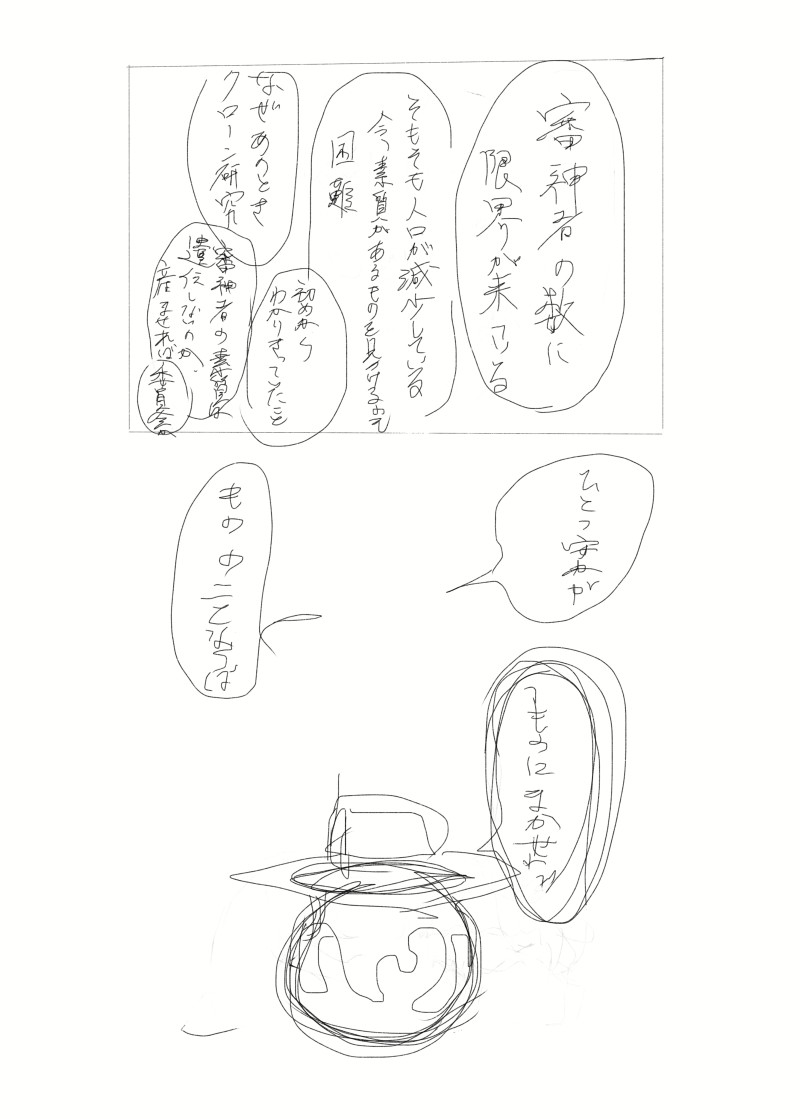 審神者の数に
限界が来ている
そもそも人口が減少している
今、素質があるものを見つけるのも
困難
なぜあのとき
クローン研究
初めから
わかりきっていたこと
審神者の素質は
遺伝しないのか、
産ませれば
委員会
ひとつ
もののことならば
ものにまかせ